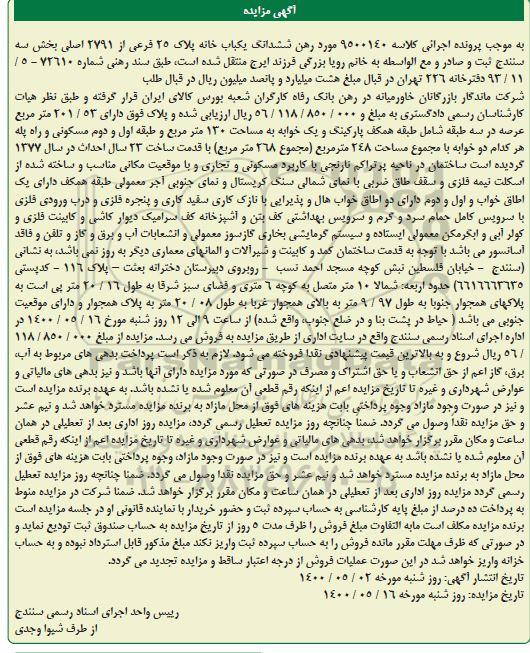 آگهی مزایده
به موجب پرونده اجرائی کلاسه ۹۵۰۰۱۴۰ مورد رهن ششدانگ یکباب خانه پلاک ۲۵ فرعی از ۲۷۹۱ اصلی بخش سه
سنندج ثبت و صادر و مع الواسطه به خانم رویا بزرگی فرزند ایرج منتقل شده است، طبق سند رهنی شماره ۷۲۶۱۰ - ۵ /
۱۱ / ۹۳ دفترخانه ۲۲۶ تهران در قبال مبلغ هشت میلیارد و پانصد میلیون ریال در قبال طلب
شرکت ماندگار بازرگانان خاورمیانه در رهن بانک رفاه کارگران شعبه بورس کالای ایران قرار گرفته و طبق نظر هیات
کارشناسان رسمی دادگستری به مبلغ و ۰۰۰ / ۸۵۰ / ۱۱۸ / ۵۶ ریال ارزیابی شده و پلاک فوق دارای ۵۳ / ۲۰۱ متر مربع
عرصه در سه طبقه شامل طبقه همکف پارکینگ و یک خوابه به مساحت ۱۳۰ متر مربع و طبقه اول و دوم مسکونی و راه پله
هر کدام دو خوابه با مجموع مساحت ۲۴۸ مترمربع (مجموع ۲۶۸ متر مربع) با قدمت ساخت ۲۳ سال احداث در سال ۱۳۷۷
گردیده است ساختمان در ناحیه پرتراکم نارنجی با کاربرد مسکونی و تجاری و با موقعیت مکانی مناسب و ساخته شده از
اسکلت نیمه فلزی و سقف طاق ضربی با نمای شمالی سنگ کریستال و نمای جنوبی آجر معمولی طبقه همکف دارای یک
اطاق خواب و اول و دوم دارای دو اطاق خواب هال و پذیرایی با نازک کاری سفید کاری و پنجره فلزی و درب ورودی فلزی
با سرویس کامل حمام سرد و گرم و سرویس بهداشتی کف بتن و آشپزخانه کف سرامیک دیوار کاشی و کابینت فلزی و
کولر آبی و ابگرمکن معمولی ایستاده و سیستم گرمایشی بخاری گازسوز معمولی و انشعابات آب و برق و گاز و تلفن و فاقد
آسانسور می باشد با توجه به قدمت ساختمان کمد و کابینت و شیرآلات و المانهای معماری دیگر به روز نمی باشد، به نشانی
(سنندج - خیابان فلسطین نبش کوچه مسجد احمد نسب - روبروی دبیرستان دخترانه بعثت - پلاک ۱۱۶ - کدپستی
۶۶۱۶۶۶۳۶۳۵) حدود اربعه: شمالا ۱۰ متر متصل به کوچه ۶ متری و فضای سبز شرقا به طول ۱۶ / ۲۰ متر پی است به
پلاکهای همجوار جنوبا به طول ۹۷ / ۹ متر به بالای همجوار غربا به طول ۰۸ / ۲۰ متر به پلاک همجوار و دارای موقعیت
جنوبی می باشد ( حیاط در پشت بنا و در ضلع جنوب، واقع شده) از ساعت ۹ الی ۱۲ روز شنبه مورخ ۱۶ / ۰۵ / ۱۴۰۰ در
اداره اجرای اسناد رسمی سنندج واقع در سایت اداری از طریق مزایده به فروش می رسد. مزایده از مبلغ ۰۰۰ / ۸۵۰ / ۱۱۸
/ ۵۶ ریال شروع و به بالاترین قیمت پیشنهادی نقدا فروخته می شود. لازم به ذکر است پرداخت بدهی های مربوط به آب،
برق، گاز اعم از حق انشعاب و یا حق اشتراک و مصرف در صورتی که مورد مزایده دارای آنها باشد و نیز بدهی های مالیاتی و
عوارض شهرداری و غیره تا تاریخ مزایده اعم از اینکه رقم قطعی آن معلوم شده یا نشده باشد. به عهده برنده مزایده است
و نیز در صورت وجود مازاد وجوه پرداختی بابت هزینه های فوق از محل مازاد به برنده مزایده مسترد خواهد شد و نیم عشر
و حق مزایده نقدا وصول می گردد. ضمنا چنانچه روز مزایده تعطیل رسمی گردد، مزایده روز اداری بعد از تعطیلی در همان
ساعت و مکان مقرر برگزار خواهد شد. بدهی های مالیاتی و عوارض شهرداری و غیره تا تاریخ مزایده اعم از اینکه رقم قطعی
آن معلوم شده یا نشده باشد به عهده برنده مزایده است و نیز در صورت وجود مازاد، وجوه پرداختی بابت هزینه های فوق از
محل مازاد به برنده مزایده مسترد خواهد شد و نیم عشر و حق مزایده نقدا وصول می گردد. ضمنا چنانچه روز مزایده تعطیل
رسمی گردد مزایده روز اداری بعد از تعطیلی در همان ساعت و مکان مقرر برگزار خواهد شد. ضمنا شرکت در مزایده منوط
به پرداخت ده درصد از مبلغ پایه کارشناسی به حساب سپرده ثبت و حضور خریدار یا نماینده قانونی او در جلسه مزایده است
برنده مزایده مکلف است مابه التفاوت مبلغ فروش را ظرف مدت ۵ روز از تاریخ مزایده به حساب صندوق ثبت تودیع نماید و
در صورتی که ظرف مهلت مقرر مانده فروش را به حساب سپرده ثبت واریز نکند مبلغ مذکور قابل استرداد نبوده و به حساب
خزانه واریز خواهد شد در این صورت عملیات فروش از درجه اعتبار ساقط و مزایده تجدید می گردد.
تاریخ انتشار آگهی: روز شنبه مورخه ۰۲ / ۰۵ / ۱۴۰۰
تاریخ مزایده: روز شنبه مورخه ۱۶ / ۰۵ / ۱۴۰۰
رییس واحد اجرای اسناد رسمی سنندج
از طرف شیوا وجدی